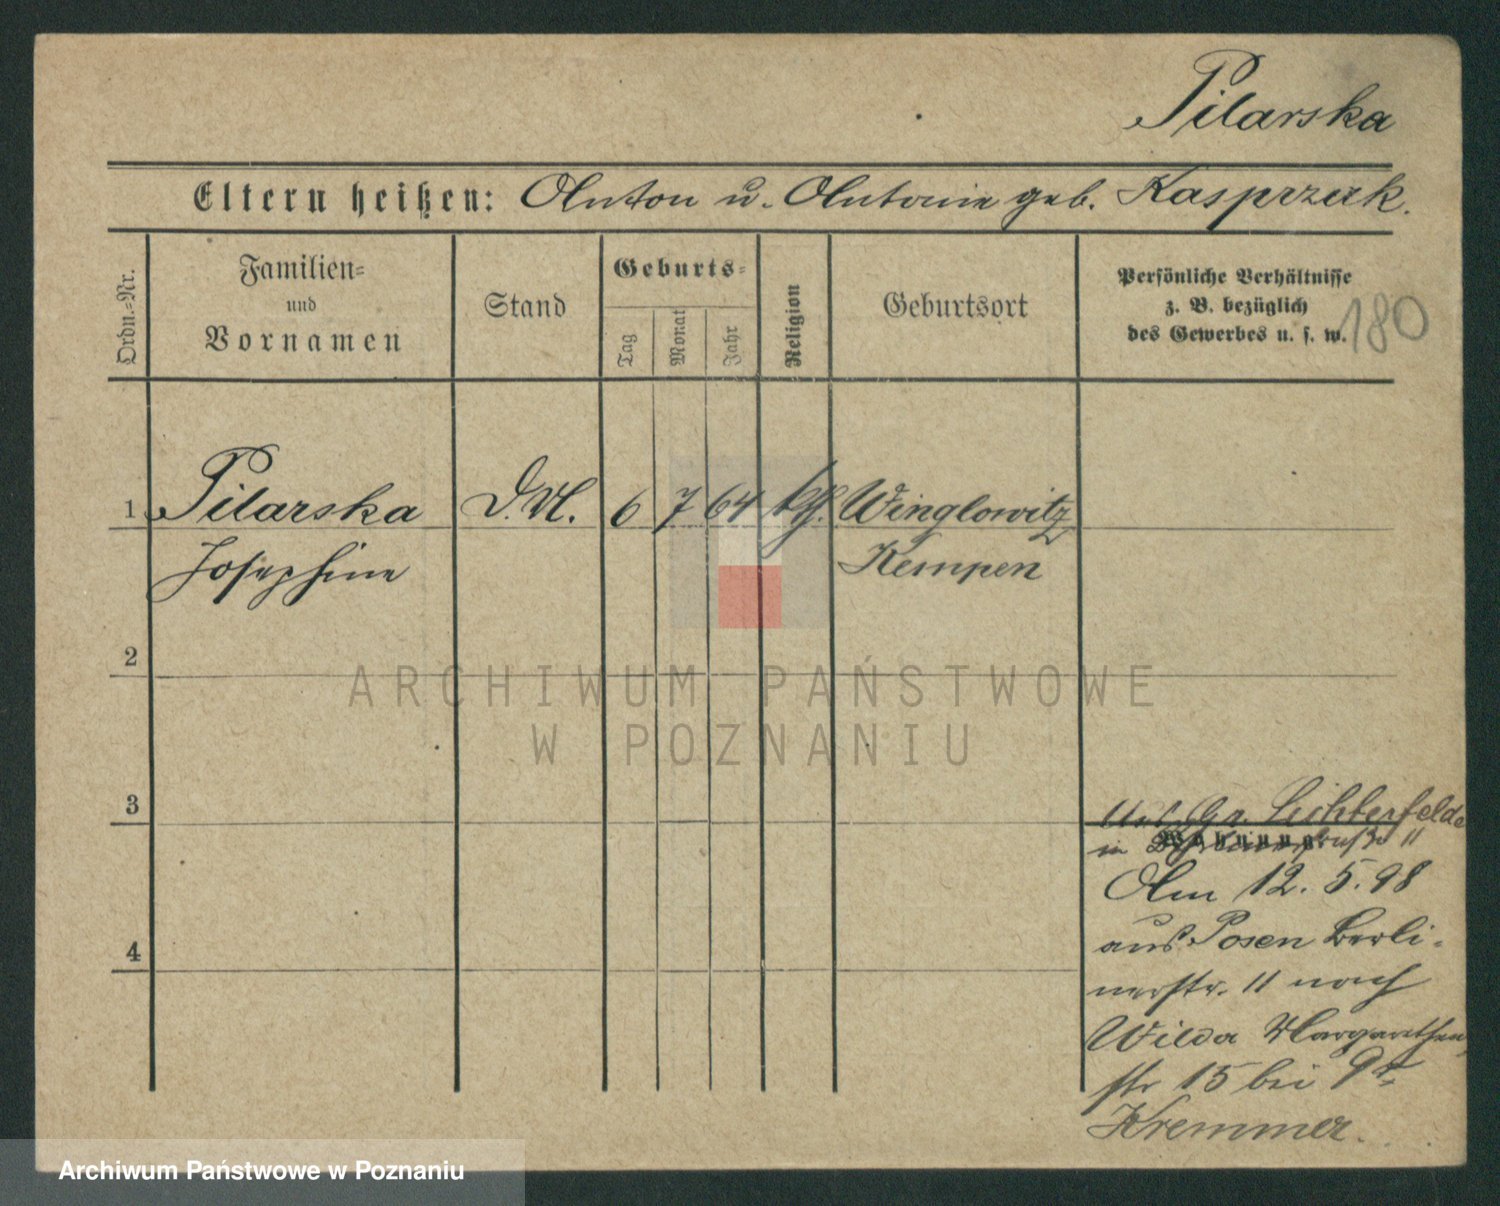 Pilarska
Eltern heißen: Anton u. Antonie geb. Kasprzak.
Ordn.-Nr.
Familien-
und
Vornamen
Stand
Geburts-
Tag
Monat
Jahr
Religion
Geburtsort
Persönliche Verhältnisse
z. B. bezüglich
des Gewerbes u. s. w.
180
1 Pilarska D.M. 6 7 64 kth. Winglowitz
Josephine Kempen
2
3
Gr. Lichterfelde
in 11
Wohnung
Am 12. 5. 98
aus Posen Berli-
nerstr. 11 nach
Wilda Margarethen
str 15 bei
Kremmer.
4
ARCHIWUM PAŃSTWOWE
W POZNANIU
Archiwum Państwowe w Poznaniu